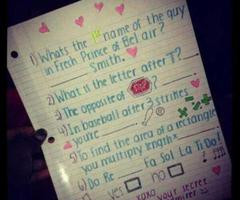 1) Whats the 1st name of the guy
in Fresh Prince of Bel air?
Smith.
2) What is the letter after T?
3) The opposite of STOP?
4) In baseball after 3 strikes
you're
5) To find the area of a rectangle
you multiply length
6) Do Re __ Fa Sol La Ti Do!
yes no
xoxo your secret